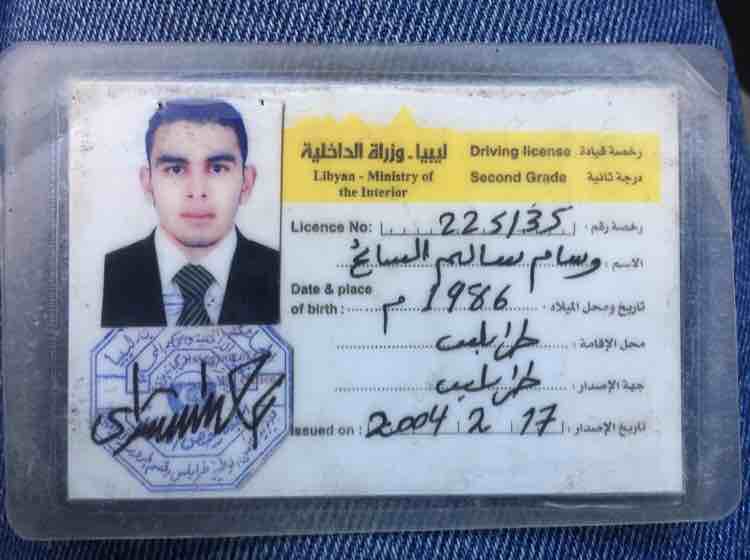 ليبيا - وزارة الداخلية
Libyan - Ministry of
the Interior
Driving license رخصة قيادة
Second Grade درجة ثانية
Licence No: 225135 رخصة رقم:
الاسم: وسام سالم السايح
Date & place
of birth: 1986 م تاريخ ومحل الميلاد:
محل الإقامة: طرابلس
جهة الإصدار: طرابلس
Issued on: 2004 2 17 تاريخ الإصدار: